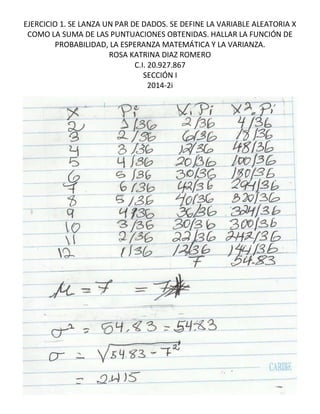 EJERCICIO 1. SE LANZA UN PAR DE DADOS. SE DEFINE LA VARIABLE ALEATORIA X
COMO LA SUMA DE LAS PUNTUACIONES OBTENIDAS. HALLAR LA FUNCIÓN DE
PROBABILIDAD, LA ESPERANZA MATEMÁTICA Y LA VARIANZA.
ROSA KATRINA DIAZ ROMERO
C.I. 20.927.867
SECCIÓN I
2014-2i
X Pi Xi Pi X² Pi
2 1/36 2/36 4/36
3 2/36 6/36 18/36
4 3/36 12/36 48/36
5 4/36 20/36 100/36
6 5/36 30/36 180/36
7 6/36 42/36 294/36
8 5/36 40/36 320/36
9 4/36 36/36 324/36
10 3/36 30/36 300/36
11 2/36 22/36 242/36
12 1/36 12/36 144/36
7 54.83
μ = 7 = 7
σ² = 54.83 = 54.83
σ = √54.83 - 7²
= 2.415
CARIBE